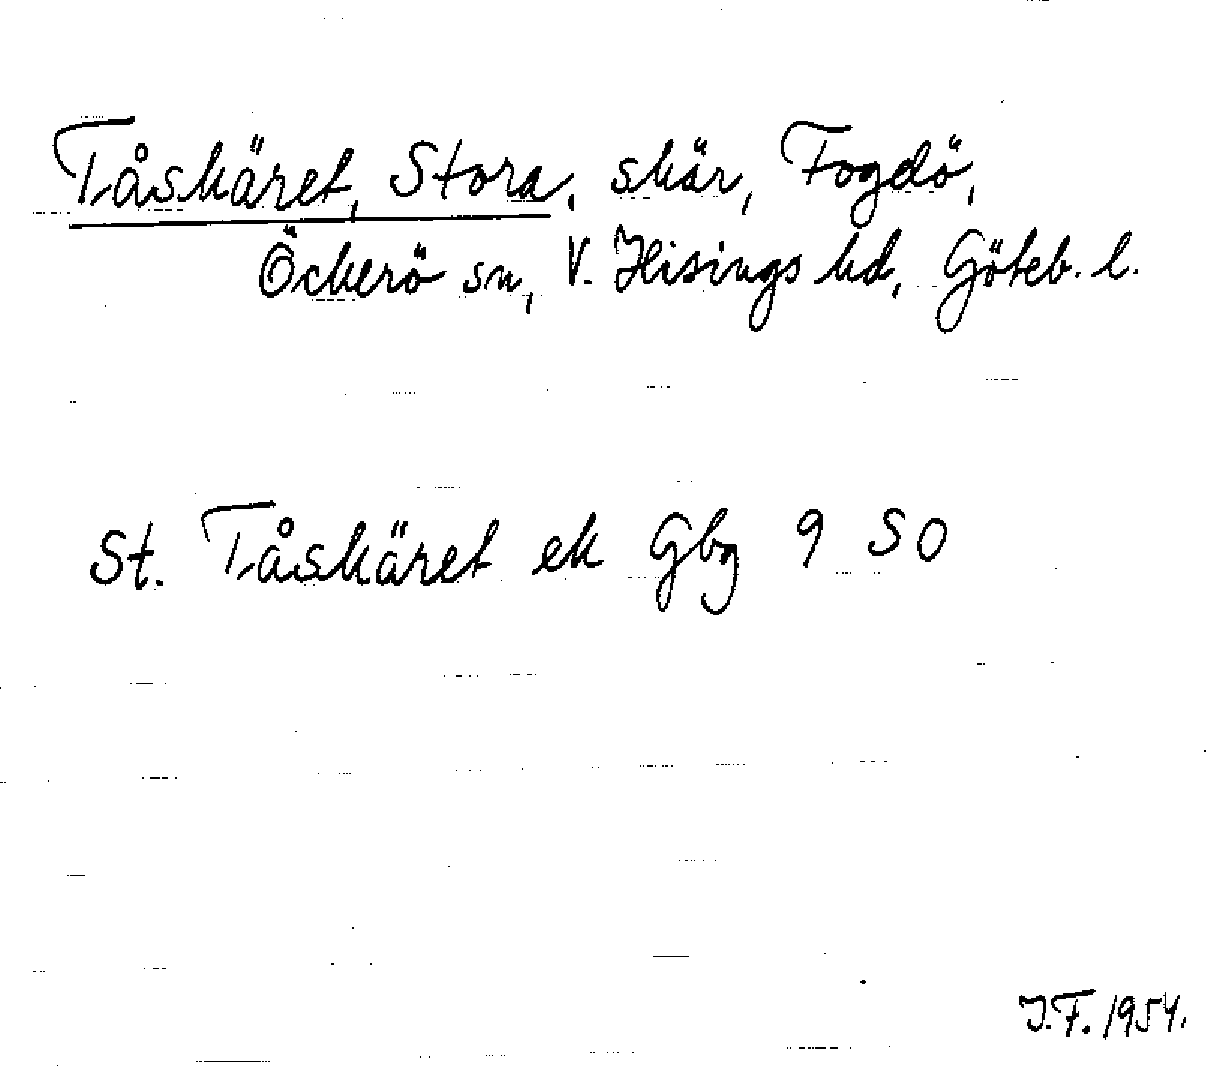 Tåskäret, Stora, skär, Fogdö,
Öckerö sn, V. Hisings hd, Göteb. l.
St. Tåskäret ek Gbg 9 SO
I.F. 1954.